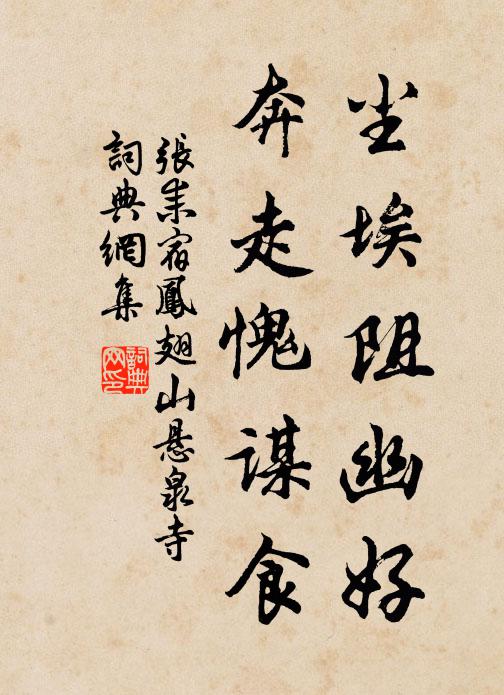 尘埃阻幽好
奔走愧谋食
張耒宿鳳翅山悬泉寺
詞典網集
詞典网印